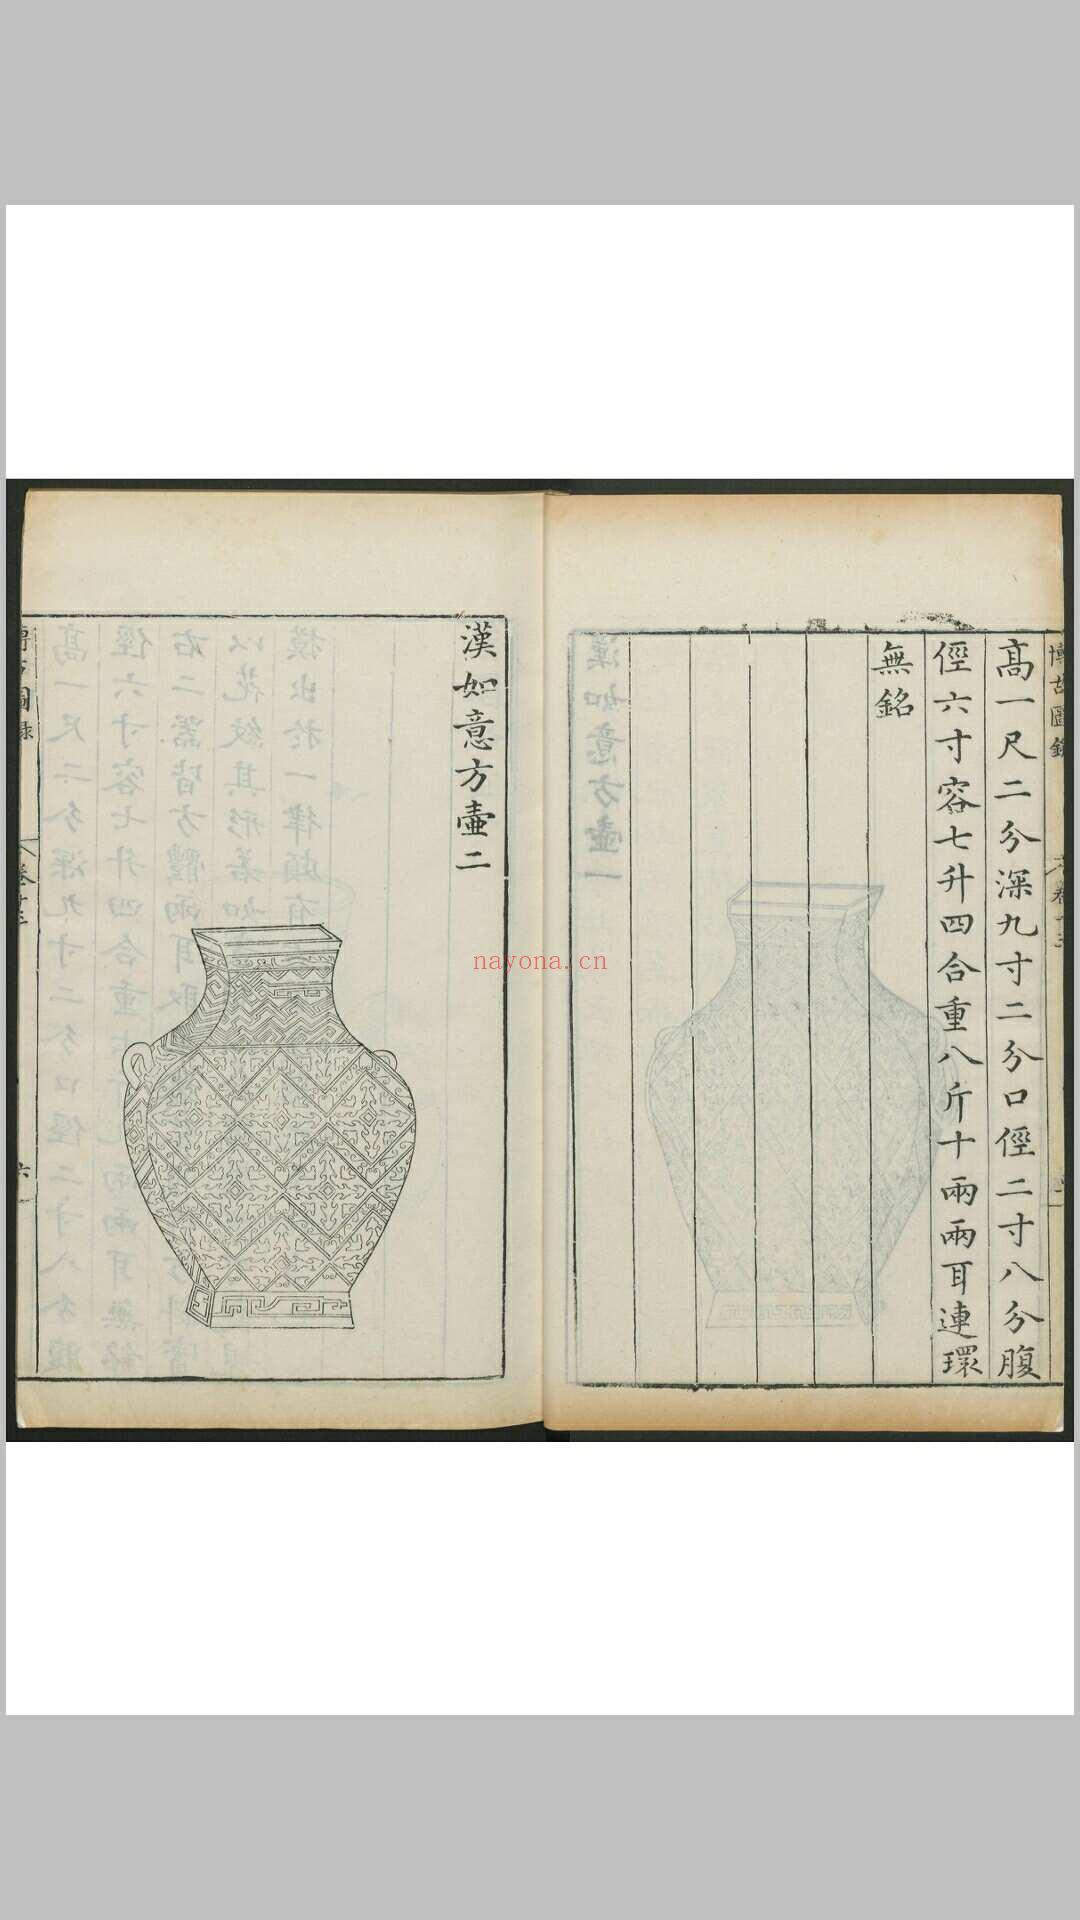 博古圖錄
卷十三
高一尺二分深九寸二分口徑二寸八分腹
徑六寸容七升四合重八斤十兩兩耳連環
無銘
漢如意方壷二
卷十三
六
nayona.cn